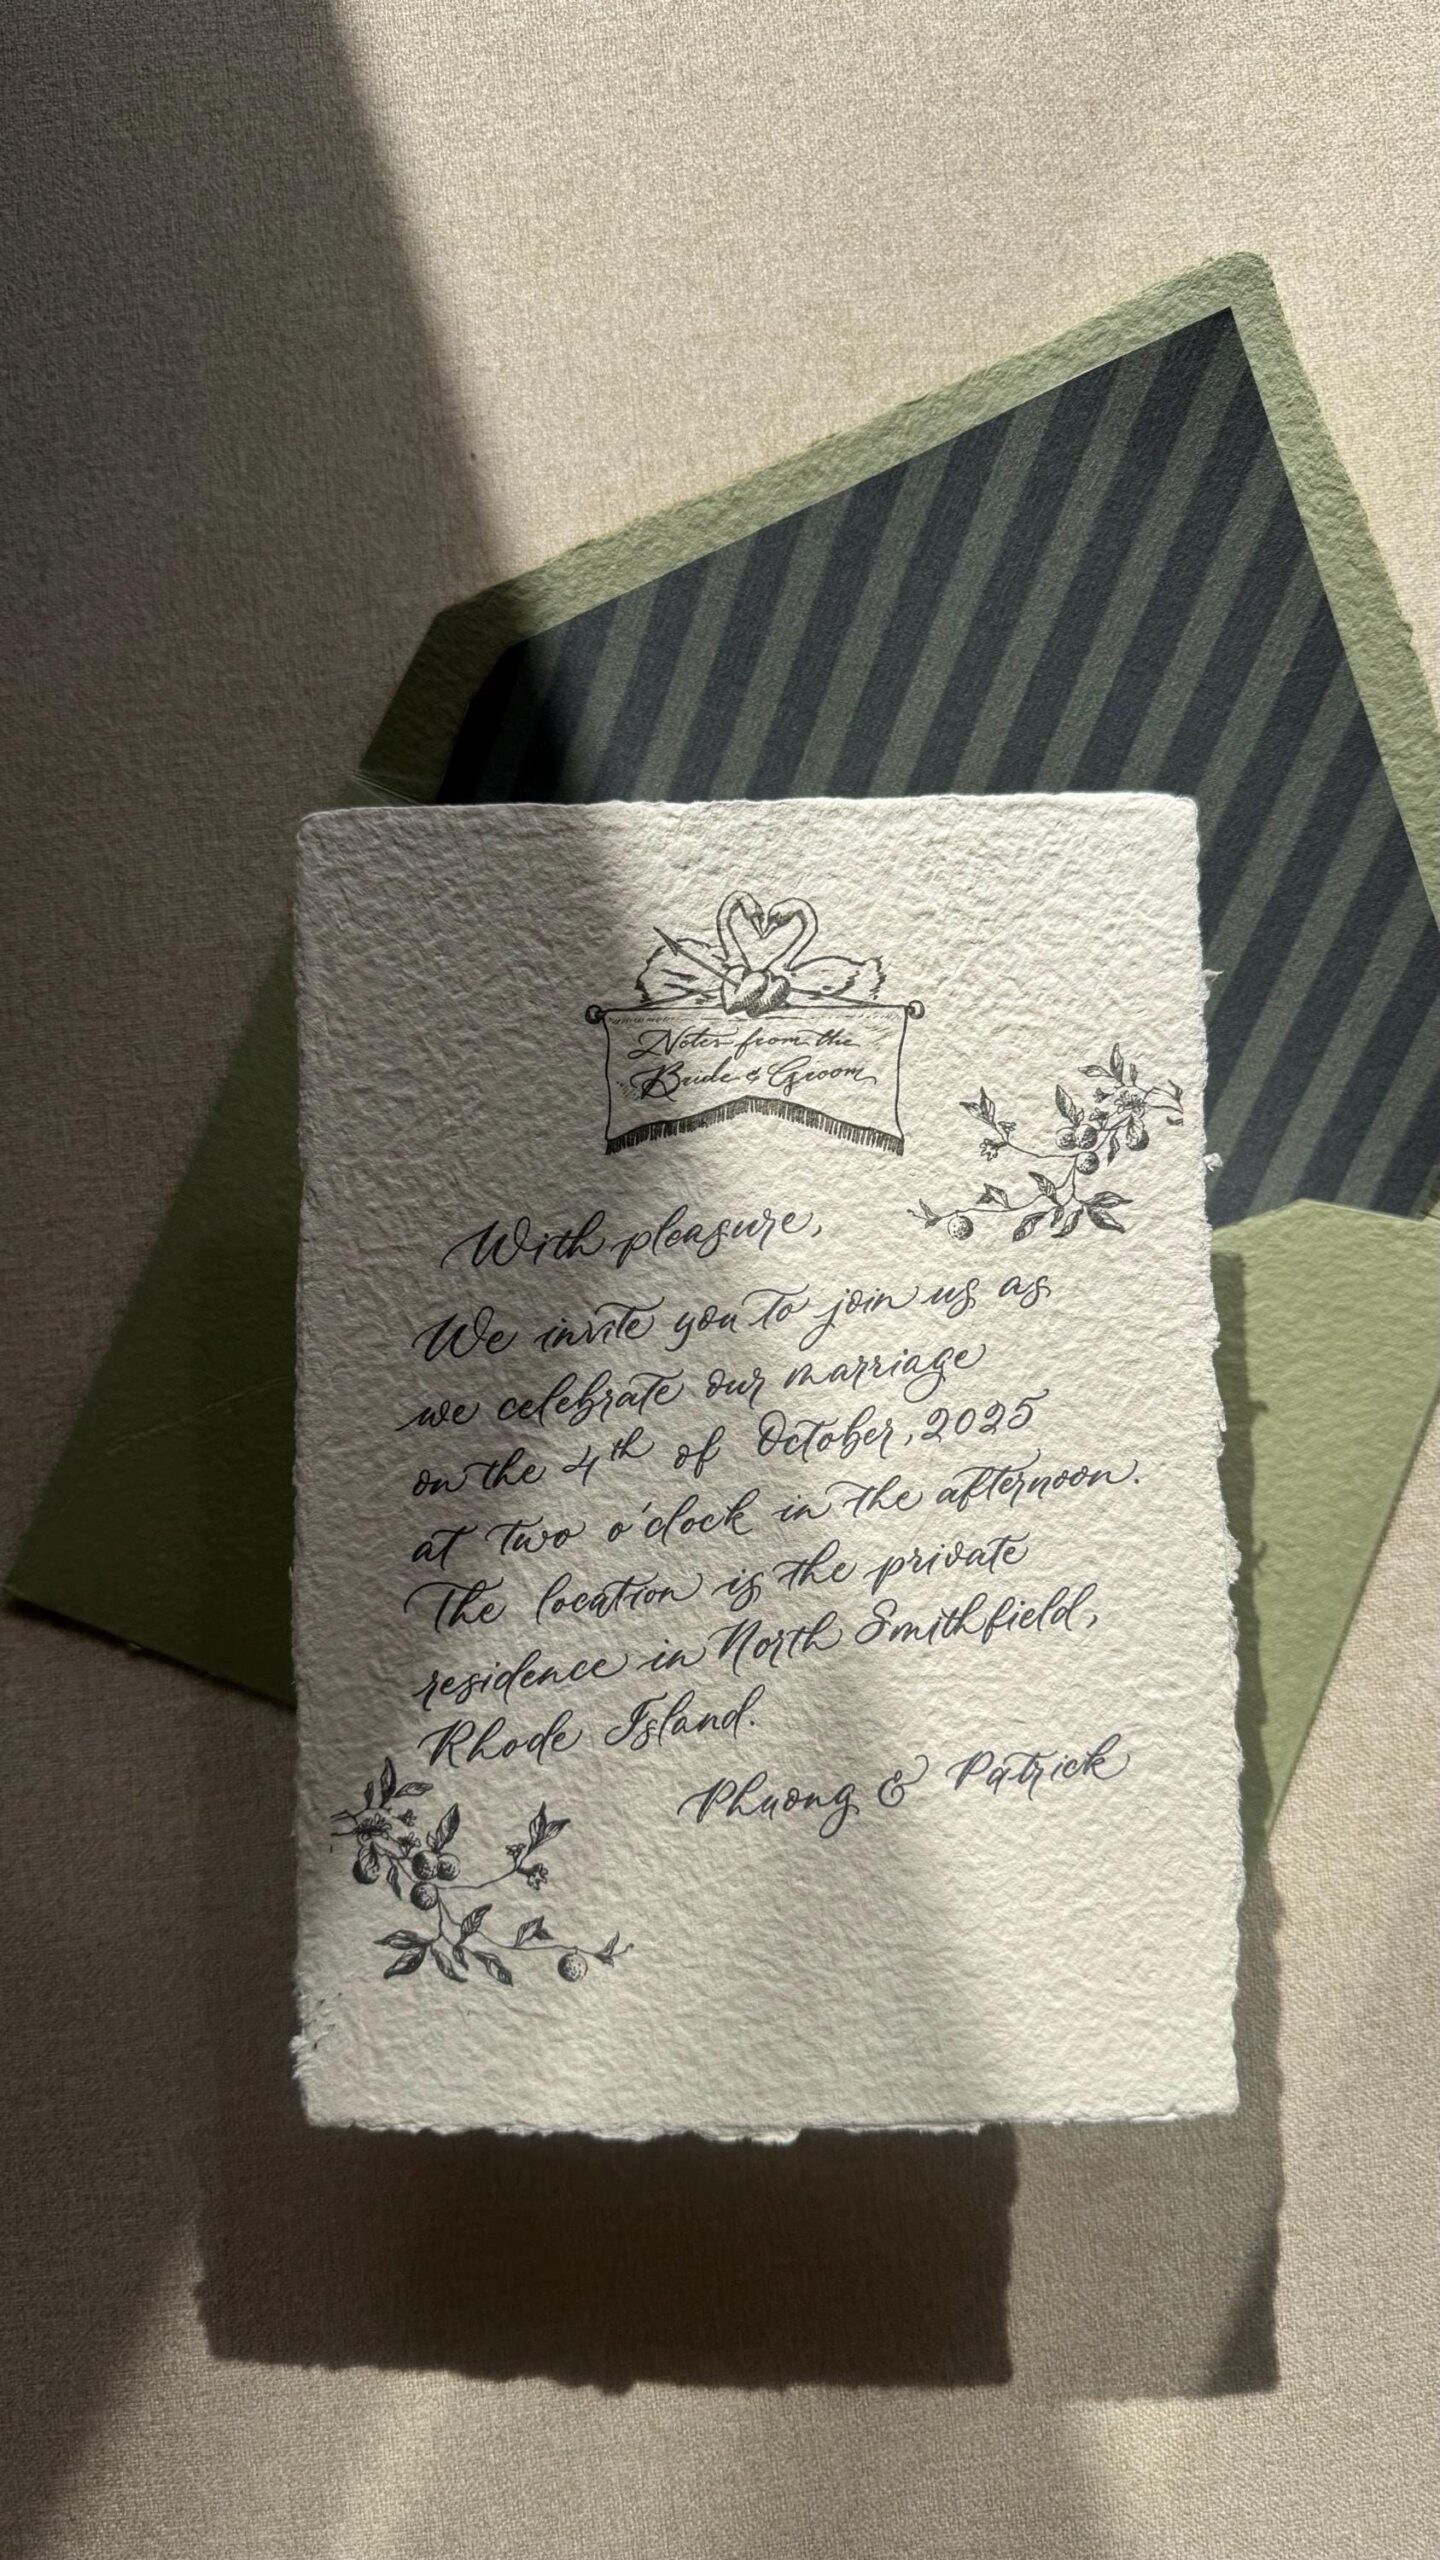 Notes from the
Bride & Groom
With pleasure,
We invite you to join us as
we celebrate our marriage
on the 4th of October, 2025
at two o'clock in the afternoon.
The location is the private
residence in North Smithfield,
Rhode Island.
Phuong & Patrick